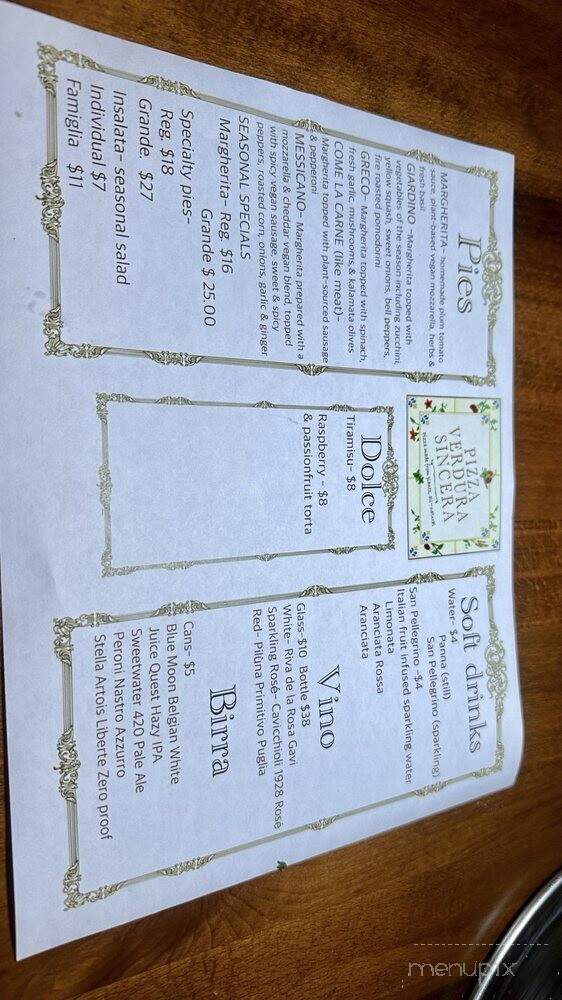 Pies
MARGHERITA– homemade plum tomato
sauce, plant-based vegan mozzarella, herbs &
fresh basil
GIARDINO –Margherita topped with
vegetables of the season including zucchini,
yellow squash, sweet onions, bell peppers,
fire roasted pomodorini
GRECO– Margherita topped with spinach,
fresh garlic, mushrooms,& kalamata olives
COME LA CARNE (like meat)–
Margherita topped with plant-sourced sausage
& pepperoni
MESSICANO– Margherita prepared with a
mozzarella & cheddar vegan blend, topped
with spicy vegan sausage, sweet & spicy
peppers, roasted corn, onions, garlic & ginger
SEASONAL SPECIALS
Margherita– Reg. $16
Grande $ 25.00
Specialty pies–
Reg. $18
Grande $27
Insalata– seasonal salad
Individual $7
Famiglia $11
PIZZA
VERDURA
SINCERA
Dolce
Tiramisu– $8
Raspberry – $8
& passionfruit torta
Soft drinks
Water– $4
Panna (still)
San Pellegrino (sparkling)
San Pellegrino –$4
Italian fruit infused sparkling water
Limonata
Aranciata Rossa
Aranciata
Vino
Glass–$10 Bottle $38
White– Riva de la Rosa Gavi
Sparkling Rosé– Cavicchioli 1928 Rosé
Red– Pilùna Primitivo Puglia
Birra
Cans– $5
Blue Moon Belgian White
Juice Quest Hazy IPA
Sweetwater 420 Pale Ale
Peroni Nastro Azzurro
Stella Artois Liberte Zero proof
menupix